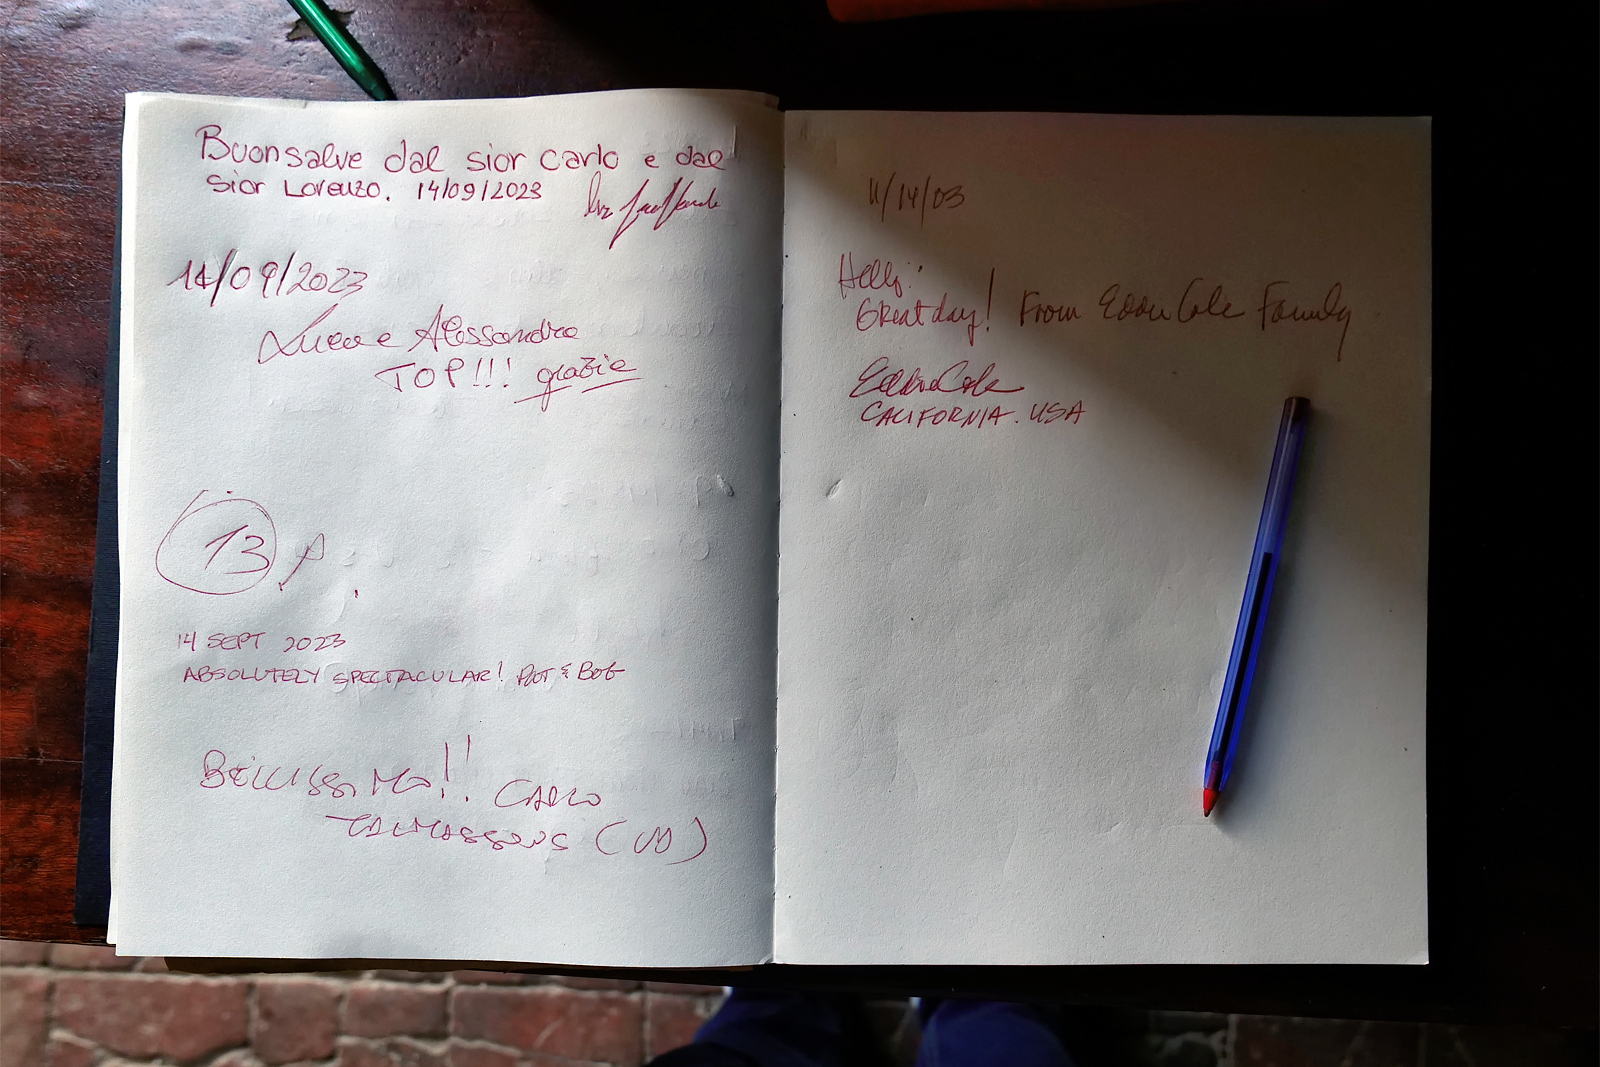 Buonsalve dal sior Carlo e dal
sior Lorenzo. 14/09/2023
14/09/2023
Luca e Alessandra
TOP!!! grazie
13
14 SEPT 2023
ABSOLUTELY SPECTACULAR! & BOB
BELLISSIMO!! CARLO
TALMASSONS (UD)
11/14/03
Hello!
Great day! From Eddie Cole Family
Eddie Cole
CALIFORNIA. USA